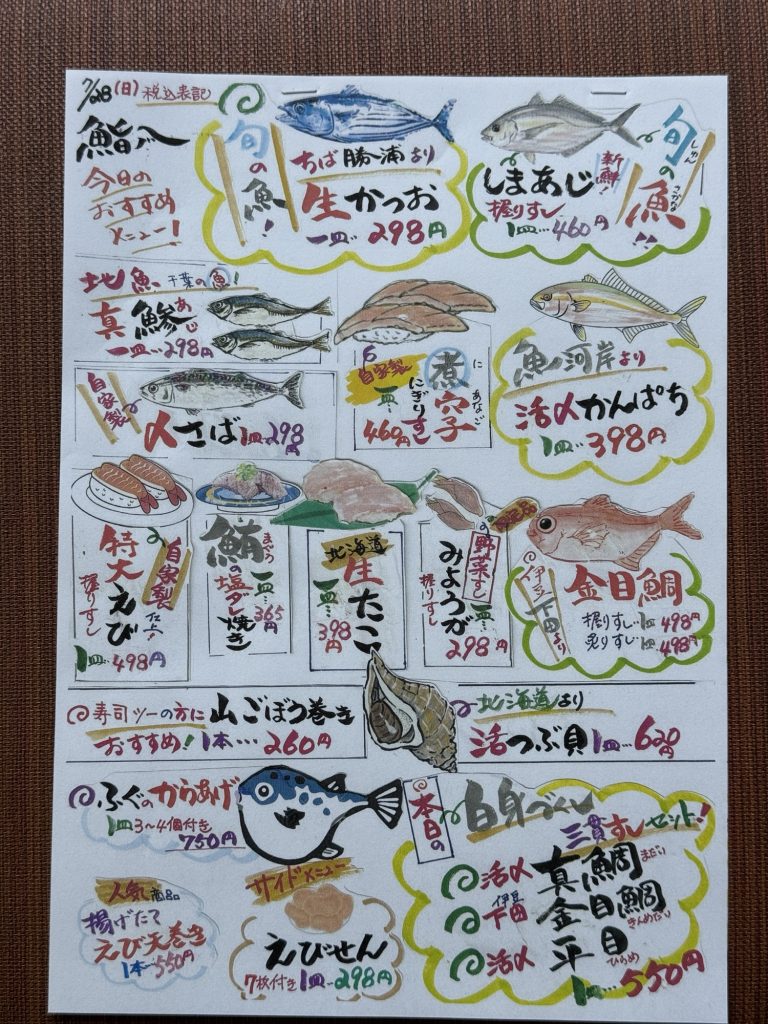 7/28(日)税込表記
鮨八
今日の
おすすめ
メニュー!
旬の魚!
ちば勝浦より
生かつお
一皿…298円
旬の魚!!
しゅん
さかな
新鮮!
しまあじ
握りすし
1皿…460円
地魚 千葉の魚!
真鯵
あじ
一皿…298円
自家製
〆さば 1皿…298円
自家製
煮穴子
に あなご
にぎりずし
一皿…460円
魚河岸より
活〆かんぱち
1皿…398円
自家製仕立て
特大えび
握りすし
1皿…498円
鮪の塩ダレ焼き
まぐろ
一皿…365円
北海道
生たこ
一皿…398円
野菜すし
みょうが
握りすし
一皿…298円
伊豆下田より
金目鯛
握りすし…1皿498円
炙りすし…1皿498円
寿司ツーの方に
おすすめ!
山ごぼう巻き
1本…260円
北海道より
活つぶ貝 1皿…620円
ふぐのからあげ
1皿3〜4個付き
750円
本日の
白身づくし
三貫すしセット!
活〆 真鯛 まだい
伊豆
下田 金目鯛 きんめだい
活〆 平目 ひらめ
1皿…550円
人気商品
揚げたて
えび天巻き
1本…550円
サイドメニュー
えびせん
7枚付き1皿…298円